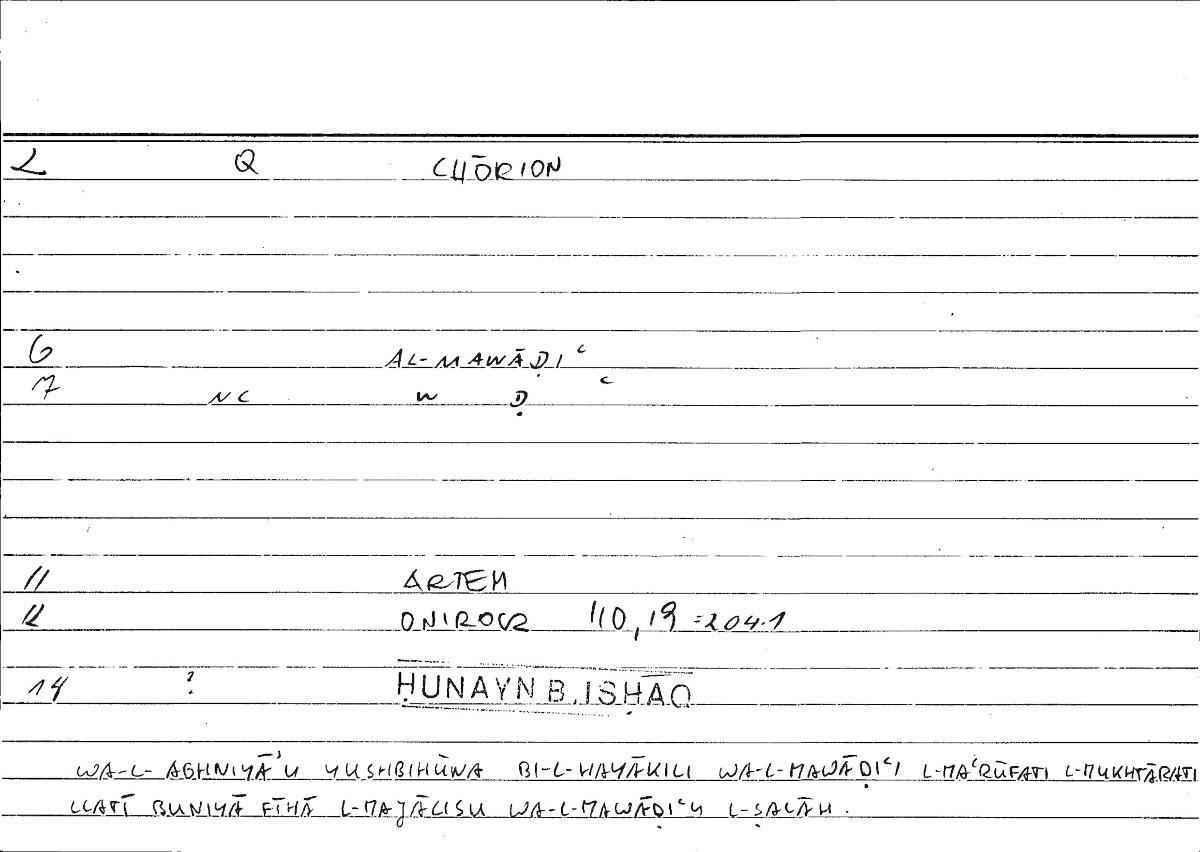 2 Q CHŌRION
6 AL-MAWĀḌIʿ
7 NC W Ḍ ʿ
11 ARTEM
12 ONIROCR 110,19 =204.1
14 ? ḤUNAYN B. ISḤĀQ
WA-L-AGHNIYĀʾU YUSHBIHŪNA BI-L-HAYĀKILI WA-L-MAWĀḌIʿI L-MAʿRŪFATI L-MUKHTĀRATI
LLATĪ BUNIYĀ FĪHĀ L-MAJĀLISU WA-L-MAWĀḌIʿU L-ṢALĀH.